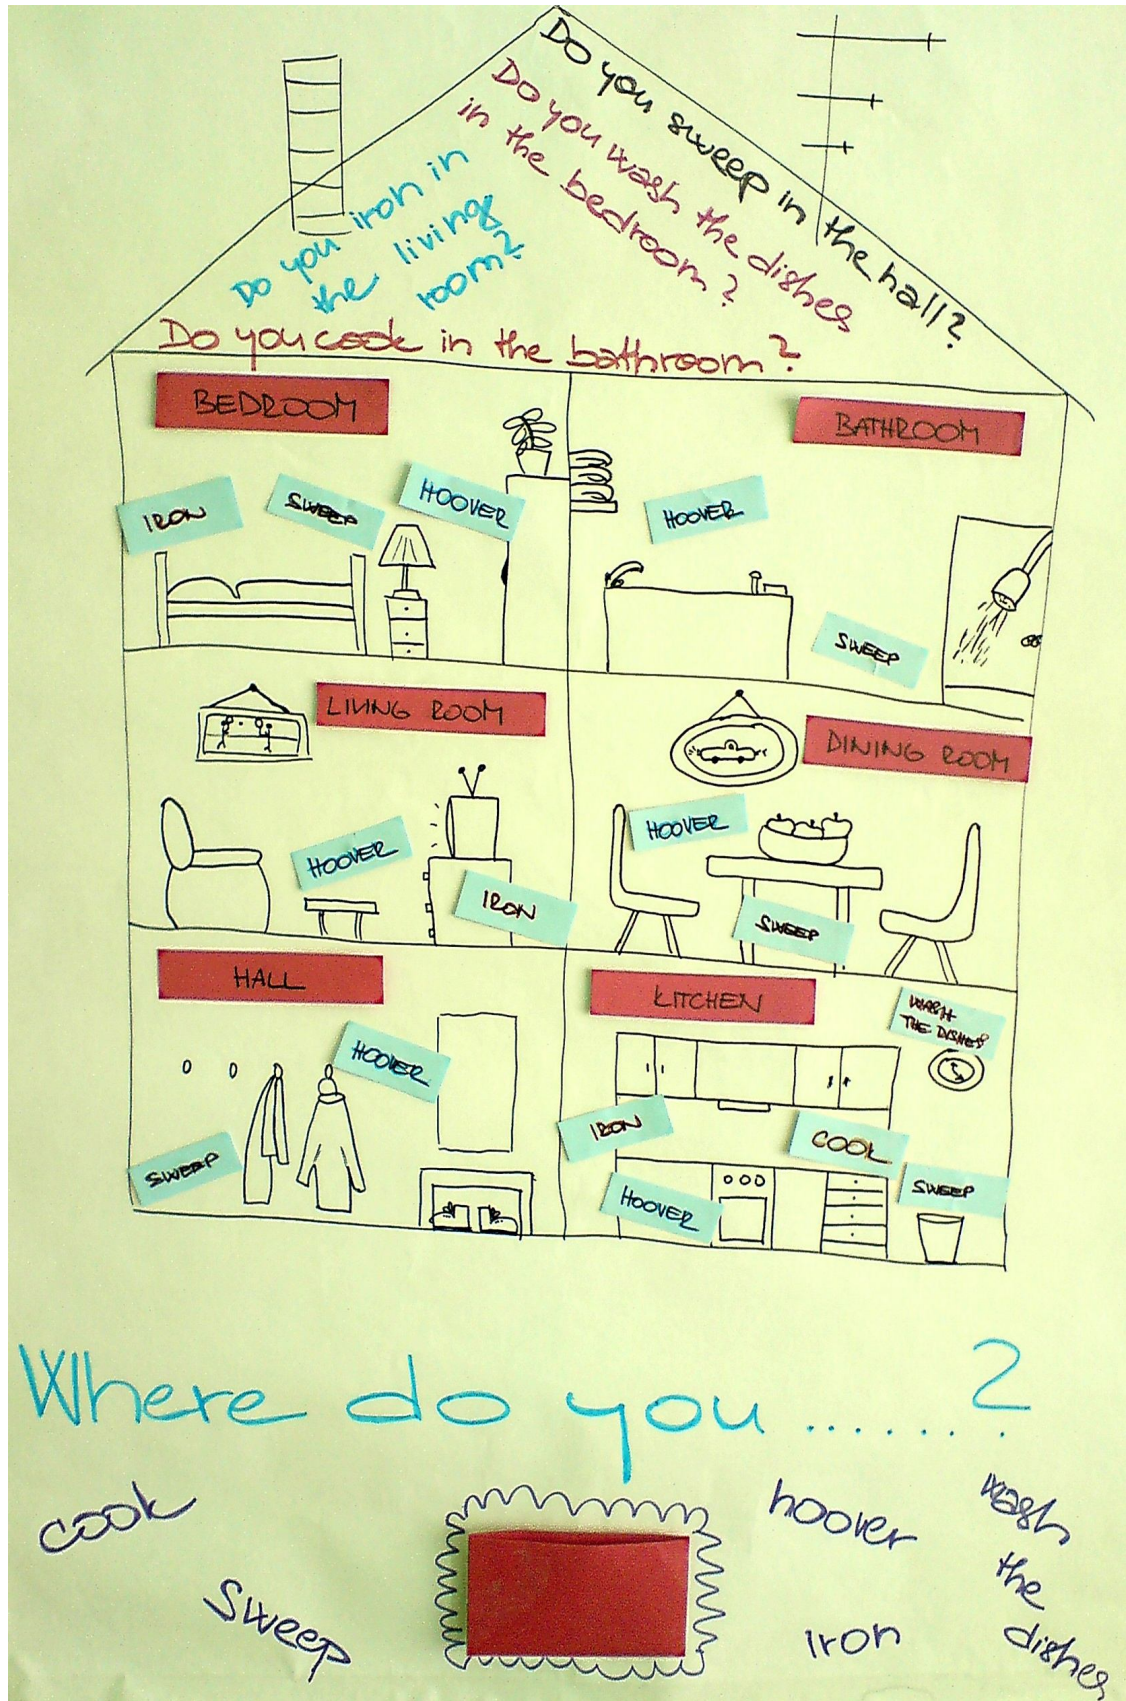 Do you sweep in the hall?
Do you wash the dishes
in the bedroom?
Do you iron in
the living
room?
Do you cook in the bathroom?
BEDROOM
IRON
SWEEP
HOOVER
BATHROOM
HOOVER
SWEEP
LIVING ROOM
HOOVER
IRON
DINING ROOM
HOOVER
SWEEP
HALL
HOOVER
SWEEP
KITCHEN
WASH
THE DISHES
IRON
COOK
HOOVER
SWEEP
Where do you .......?
cook
sweep
hoover
iron
wash
the
dishes